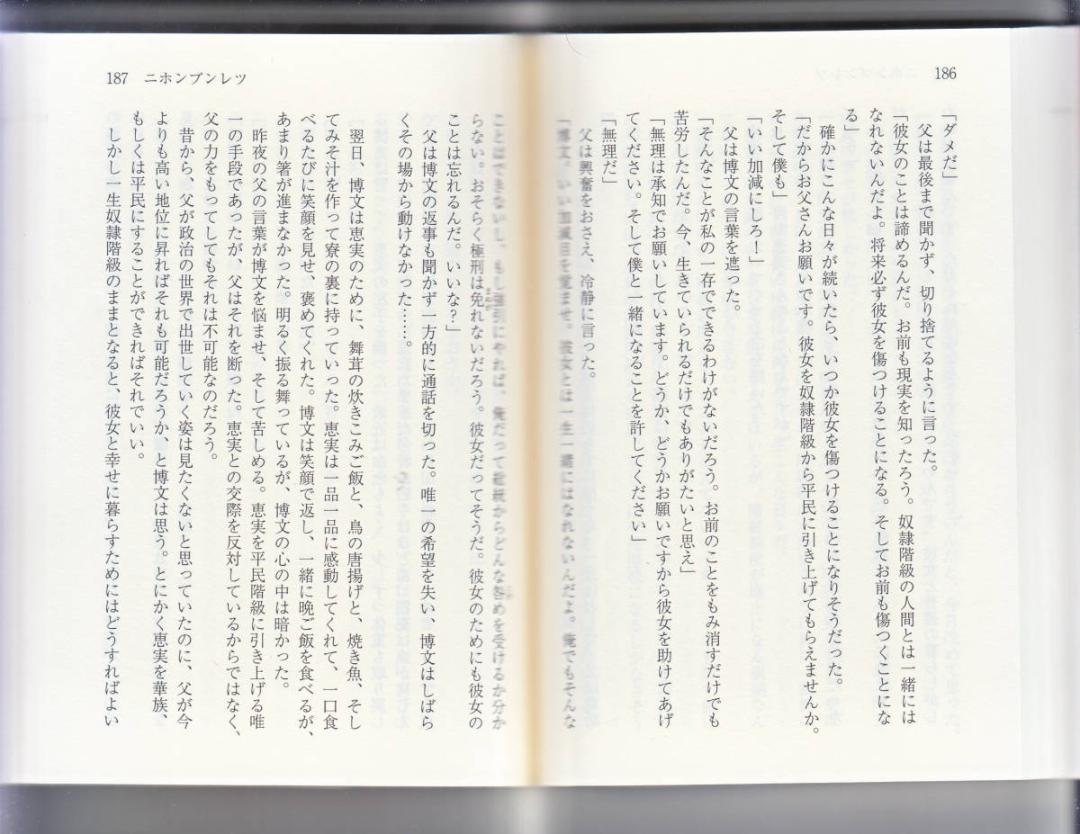 186
「ダメだ」
　父は最後まで聞かず、切り捨てるように言った。
「彼女のことは諦めるんだ。お前も現実を知ったろう。奴隷階級の人間とは一緒には
なれないんだよ。将来必ず彼女を傷つけることになる。そしてお前も傷つくことにな
る」
　確かにこんな日々が続いたら、いつか彼女を傷つけることになりそうだった。
「だからお父さんお願いです。彼女を奴隷階級から平民に引き上げてもらえませんか。
そして僕も」
「いい加減にしろ！」
　父は博文の言葉を遮った。
「そんなことが私の一存でできるわけがないだろう。お前のことをもみ消すだけでも
苦労したんだ。今、生きていられるだけでもありがたいと思え」
「無理は承知でお願いしています。どうか、どうかお願いですから彼女を助けてあげ
てください。そして僕と一緒になることを許してください」
「無理だ」
　父は興奮をおさえ、冷静に言った。
「博文。いい加減目を覚ませ。彼女とは一生一緒にはなれないんだよ。俺でもそんな
187　ニホンブンレツ
ことはできないし、もし強引にやれば、俺だって総統からどんな咎めを受けるか分か
らない。おそらく極刑は免れないだろう。彼女だってそうだ。彼女のためにも彼女の
ことは忘れるんだ。いいな？」
　父は博文の返事も聞かず一方的に通話を切った。唯一の希望を失い、博文はしばら
くその場から動けなかった……。
　翌日、博文は恵実のために、舞茸の炊きこみご飯と、鳥の唐揚げと、焼き魚、そし
てみそ汁を作って寮の裏に持っていった。恵実は一品一品に感動してくれて、一口食
べるたびに笑顔を見せ、褒めてくれた。博文は笑顔で返し、一緒に晩ご飯を食べるが、
あまり箸が進まなかった。明るく振る舞っているが、博文の心の中は暗かった。
　昨夜の父の言葉が博文を悩ませ、そして苦しめる。恵実を平民階級に引き上げる唯
一の手段であったが、父はそれを断った。恵実との交際を反対しているからではなく、
父の力をもってしてもそれは不可能なのだろう。
　昔から、父が政治の世界で出世していく姿は見たくないと思っていたのに、父が今
よりも高い地位に昇ればそれも可能だろうか、と博文は思う。とにかく恵実を華族、
もしくは平民にすることができればそれでいい。
　しかし一生奴隷階級のままとなると、彼女と幸せに暮らすためにはどうすればよい